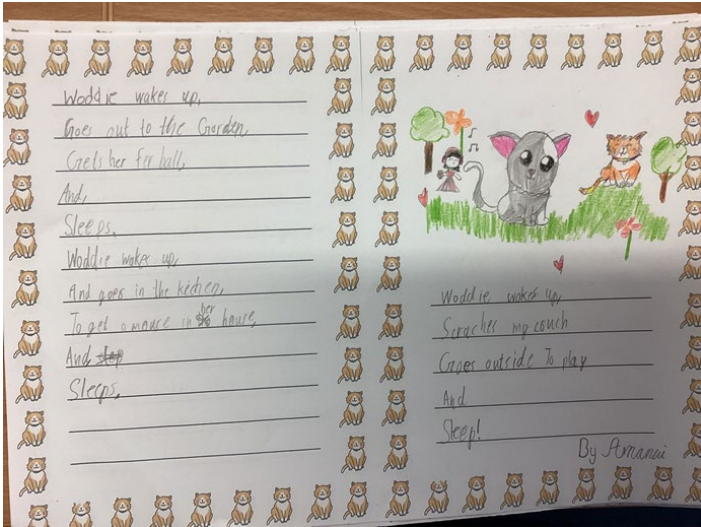 Woddie wakes up,
Goes out to the Gorden,
Gets her fir ball,
And,
Sleeps.
Woddie wakes up,
And goes in the kichen,
To get a mouse in her house,
And
Sleeps.
Woddie wakes up,
Scraches my couch
Goes outside To play
And
Sleep!
By Amanai